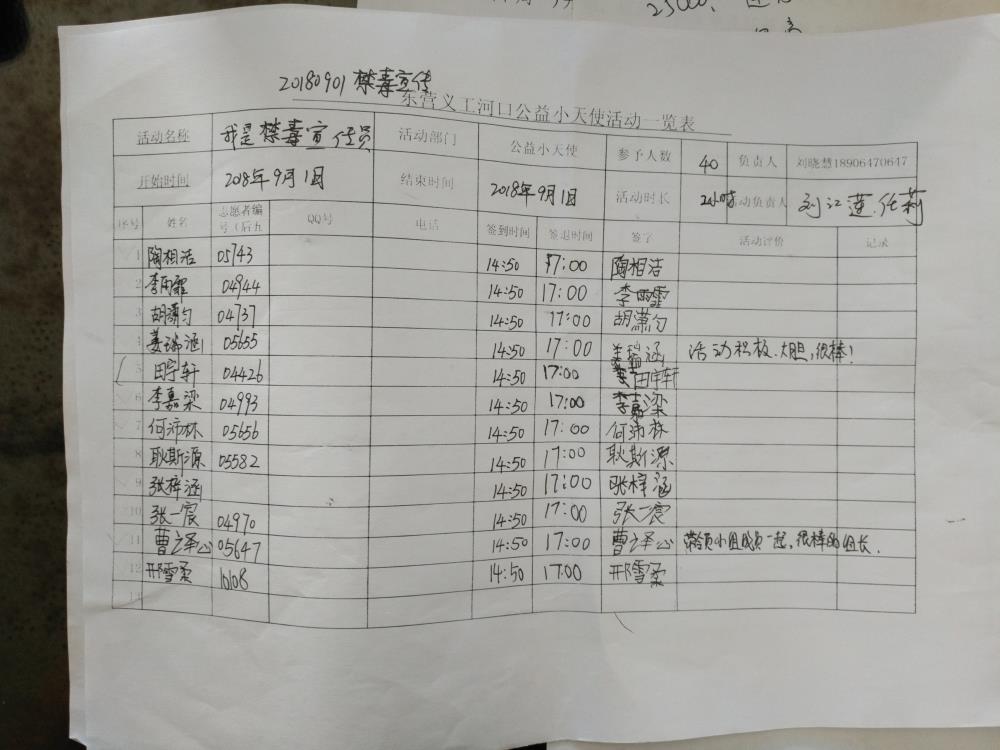 25000
20180901 禁毒宣传
东营义工河口公益小天使活动一览表
活动名称 我是禁毒宣传员 活动部门 公益小天使 参予人数 40 负责人 刘晓慧18906470647
开始时间 2018年9月1日 结束时间 2018年9月1日 活动时长 2小时 活动负责人 刘江莲.任莉
序号 姓名 志愿者编号(后五 QQ号 电话 签到时间 签退时间 签字 活动评价 记录
1 陶相洁 05743 14:50 17:00 陶相洁
2 李雨霏 04944 14:50 17:00 李雨霏
3 胡潇匀 04737 14:50 17:00 胡潇匀
4 姜瑞涵 05655 14:50 17:00 姜瑞涵 活动积极.大胆,很棒!
5 田宇轩 04426 14:50 17:00 田宇轩
6 李嘉梁 04993 14:50 17:00 李嘉梁
7 何沛林 05656 14:50 17:00 何沛林
8 耿斯源 05582 14:50 17:00 耿斯源
9 张梓涵 14:50 17:00 张梓涵
10 张一宸 04970 14:50 17:00 张一宸
11 曹泽心 05647 14:50 17:00 曹泽心 带领小组成员一起,很棒的组长.
12 邢雪柔 10108 14:50 17:00 邢雪柔
13